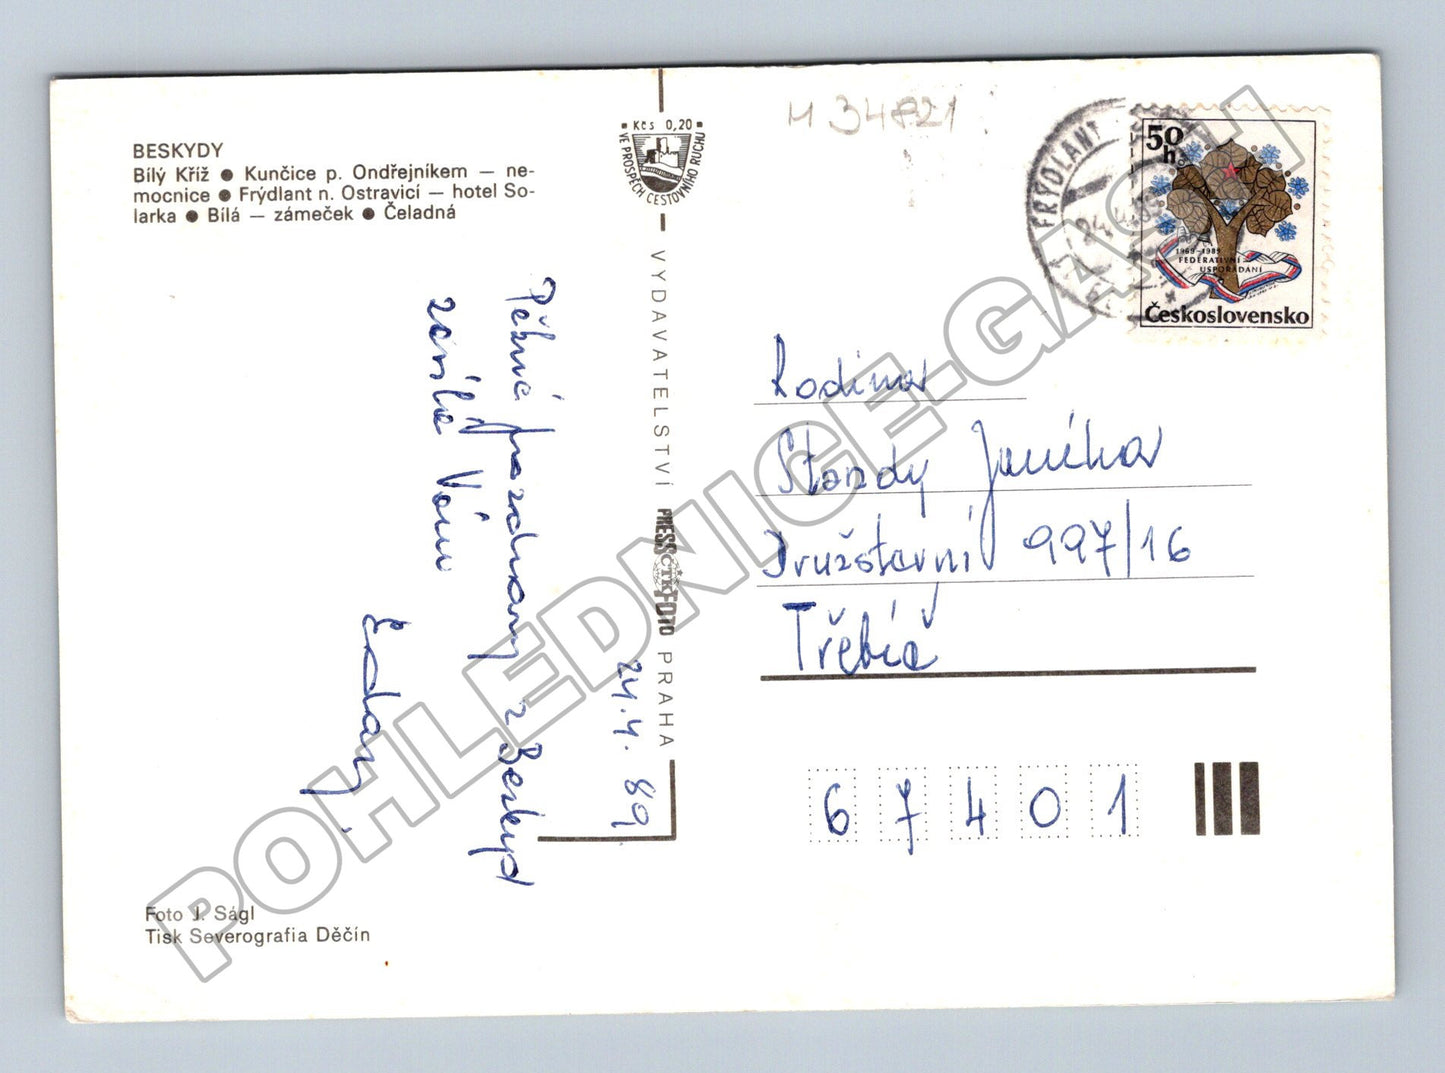 BESKYDY
Bílý Kříž ● Kunčice p. Ondřejníkem — ne-
mocnice ● Frýdlant n. Ostravicí — hotel So-
larka ● Bílá — zámeček ● Čeladná
Kčs 0,20
VE PROSPĚCH CESTOVNÍHO RUCHU
24.4.89
Pěkné pozdravy z Beskyd
zasílá Vám
VYDAVATELSTVÍ PRESSFOTO PRAHA
ČTK
M 34821
FRÝDLANT
24.4.89
50 h
1969-1989
FEDERATIVNÍ
USPOŘÁDÁNÍ
Československo
Rodina
Standy Janíka
Družstevní 997/16
Třebíč
67401
Foto J. Ságl
Tisk Severografia Děčín
POHLEDNICE-GASH